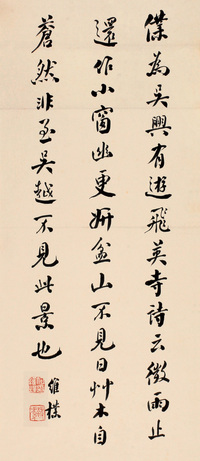 僕為吳興有遊飛英寺詩云微雨止
還作小窗幽更妍盆山不見日艸木自
蒼然非至吳越不見此景也
維樸